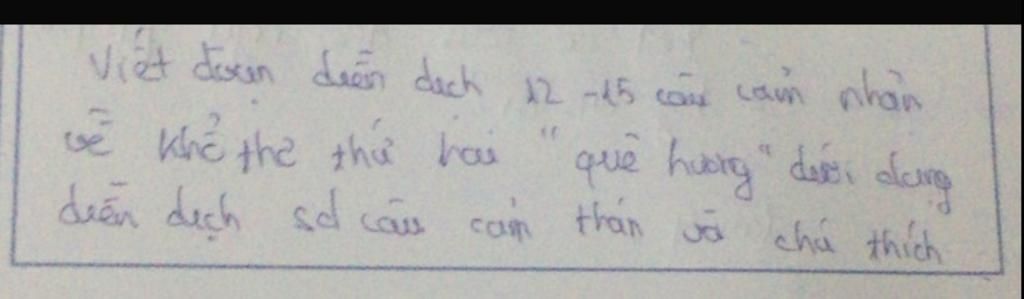 Viết đoạn diễn dịch 12 - 15 câu cảm nhận
về khổ thơ thứ hai "quê hương" dưới dạng
diễn dịch sd câu cảm thán và chú thích